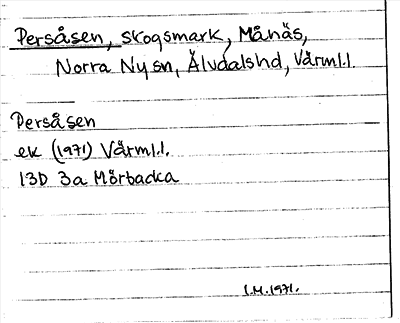 Persåsen, skogsmark, Månäs,
Norra Ny sn, Älvdalshd, Värml.l.
Persåsen
ek (1971) Värml.l.
13D 3a Mårbacka
I.M. 1971.